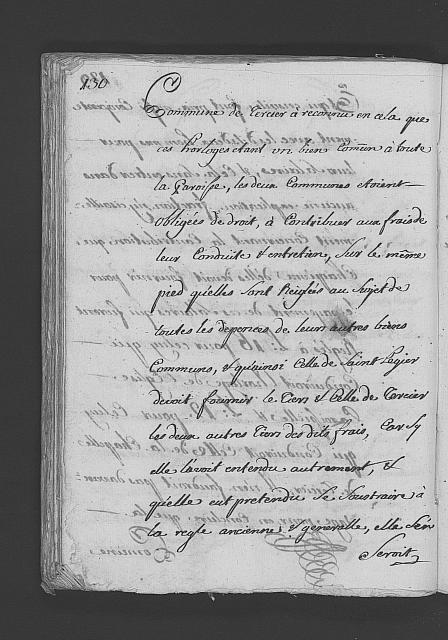 130
Commune de Corsier a reconnu en cela que
ces horloges etant un bien Comün à toute
la Paroisse, les deux Communes etoient
obligées de droit, à Contribuer aux fraix de
leur Conduite & entretien, Sur le même
pied quelles Sont Reiglés au Sujet de
toutes les depences de leurs autres biens
Communs, & qu'ainsi Celle de Saint Legier
devoit fournir le Tiers & Celle de Corsier
les deux autres Tiers des dits fraix, Car Sy
elle l'avoit entendu autrement, &
quelle eut pretendu Se Soustraire à
la regle ancienne & generalle, elle S'en
Seroit